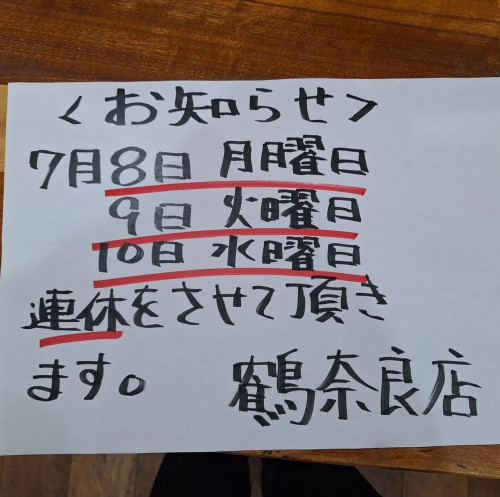 <お知らせ>
7月8日 月曜日
9日 火曜日
10日 水曜日
連休をさせて頂き
ます。 鶴奈良店